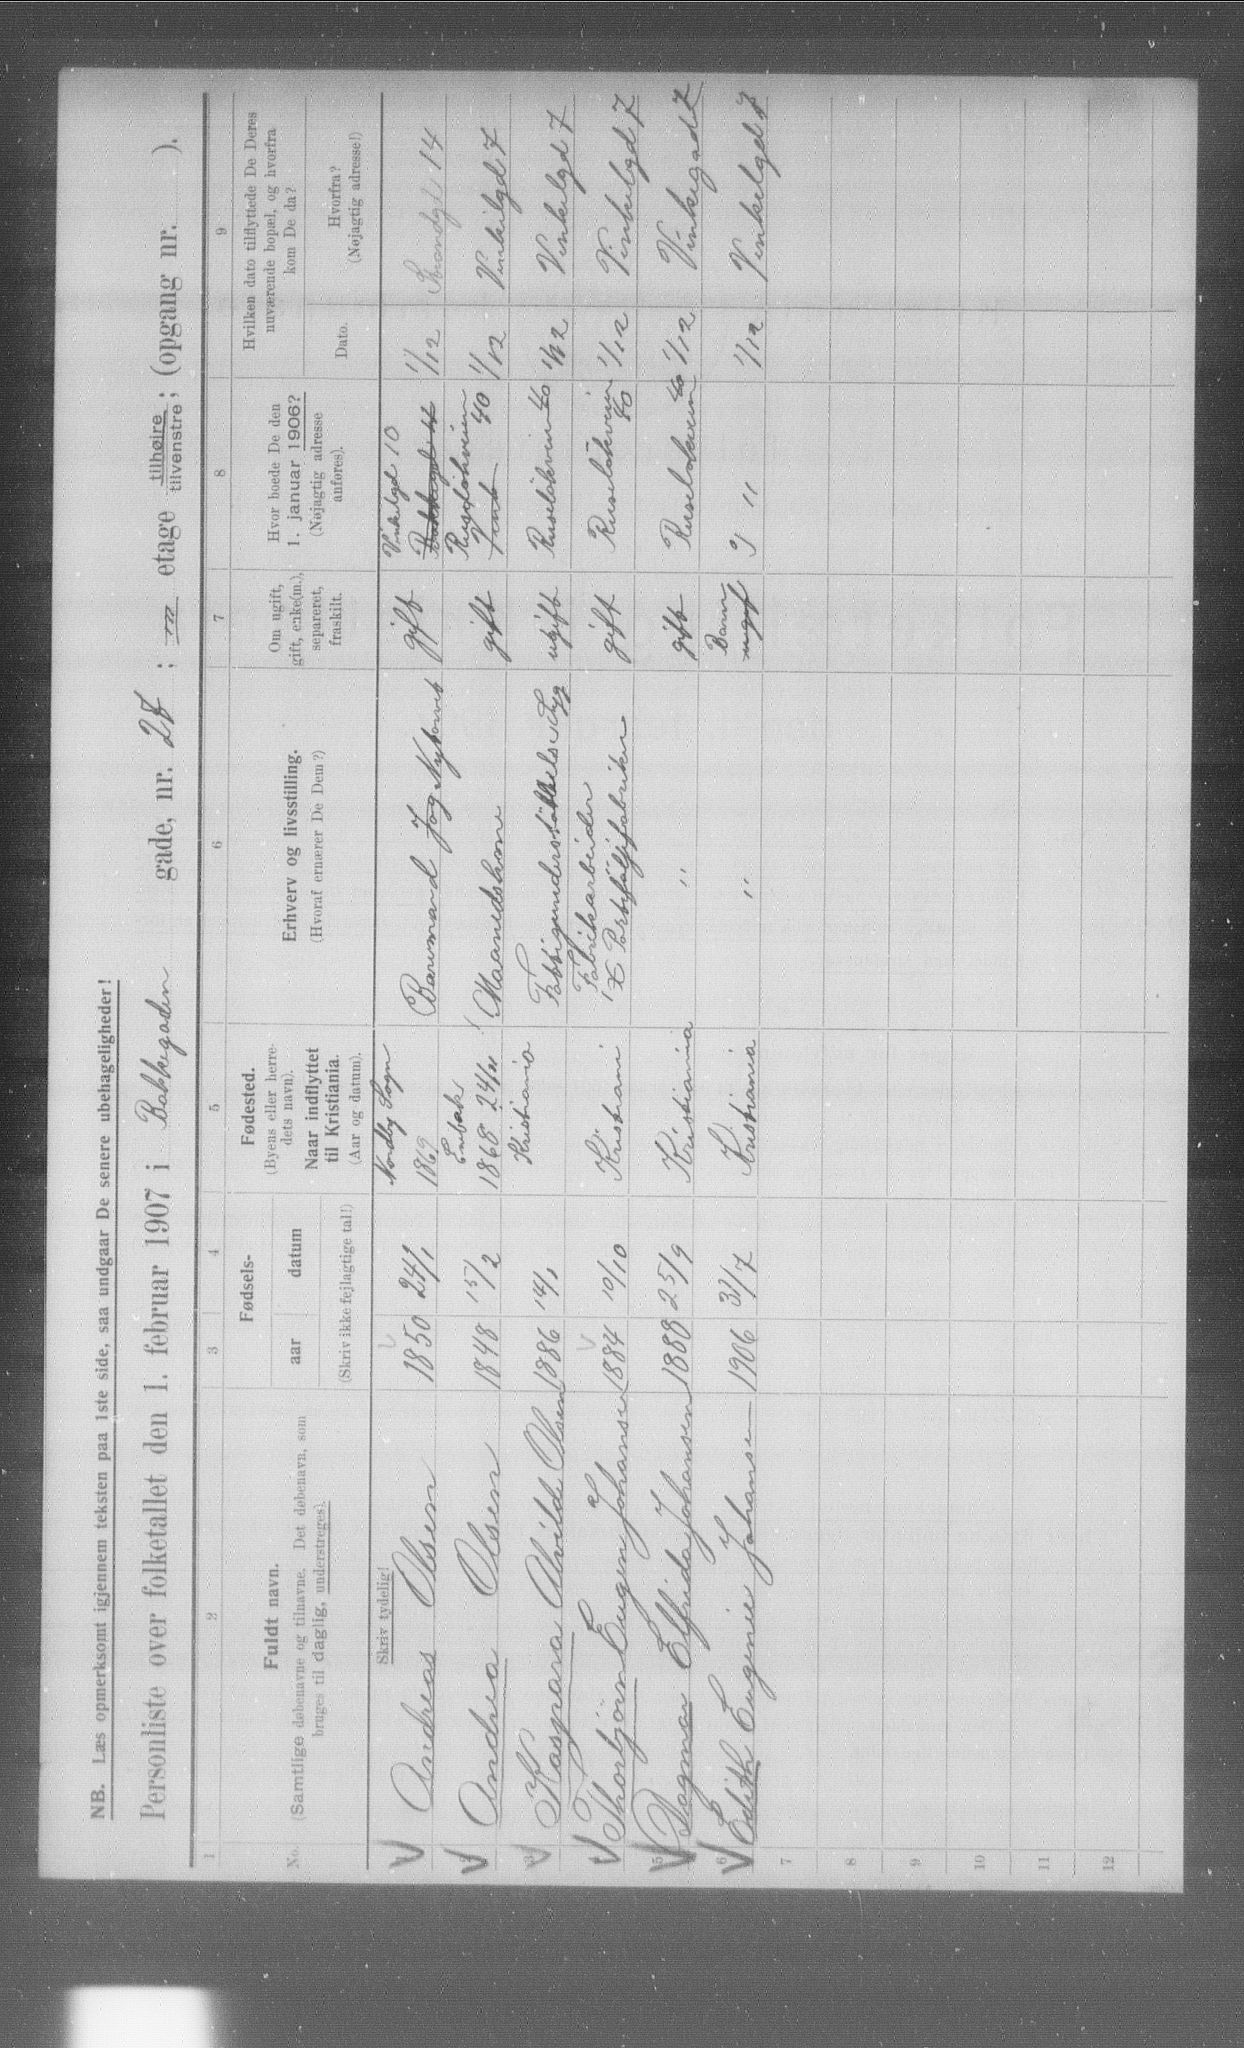 NB. Læs opmerksomt igjennem teksten paa 1ste side, saa undgaar De senere ubehageligheder!
Personliste over folketallet den 1. februar 1907 i Bakkegaden gade, nr. 28 ; m etage tilhøire tilvenstre; (opgang nr. ).
1 2 3 4 5 6 7 8 9
No.
Fuldt navn.
(Samtlige døbenavne og tilnavne. Det døbenavn, som
bruges til daglig, understreges).
Fødsels-
aar datum
(Skriv ikke fejlagtige tal!)
Fødested.
(Byens eller herre-
dets navn).
Naar indflyttet
til Kristiania.
(Aar og datum).
Erhverv og livsstilling.
(Hvoraf ernærer De Dem?)
Om ugift,
gift, enke(m.),
separeret,
fraskilt.
Hvor boede De den
1. januar 1906?
(Nøjagtig adresse
anføres).
Hvilken dato tilflyttede De Deres
nuværende bopæl, og hvorfra
kom De da?
Dato.
Hvorfra?
(Nøjagtig adresse!)
Skriv tydelig!
Andreas Olsen 1850 24/1 Nordby Sogn 1869 gift Vinkelgd 10 1/12 14
2 Andrea Olsen 1848 15/2 Enebak 1868 Maanedskone gift Ruseløkveien 40 1/12 Vinkelgd 7
3 Kaspara Alvilde Olsen 1886 14/1 Kristiania ugift Ruseløkvein 40 1/12 Vinkelgd 7
Thorbjørn Eugen Johansen 1884 10/10 Kristiani Fabrikarbeider gift Ruseløkveien 40 1/12 Vinkelgd 7
5 Dagmar Elfrida Johansen 1888 25/9 Kristiania " gift Ruseløkveien 40 1/12 Vinkegad 7
6 Edith Eugenie Johansen 1906 31/7 Kristiania " Barn " 1/12 Vinkelgd 7
7
8
9
10
11
12